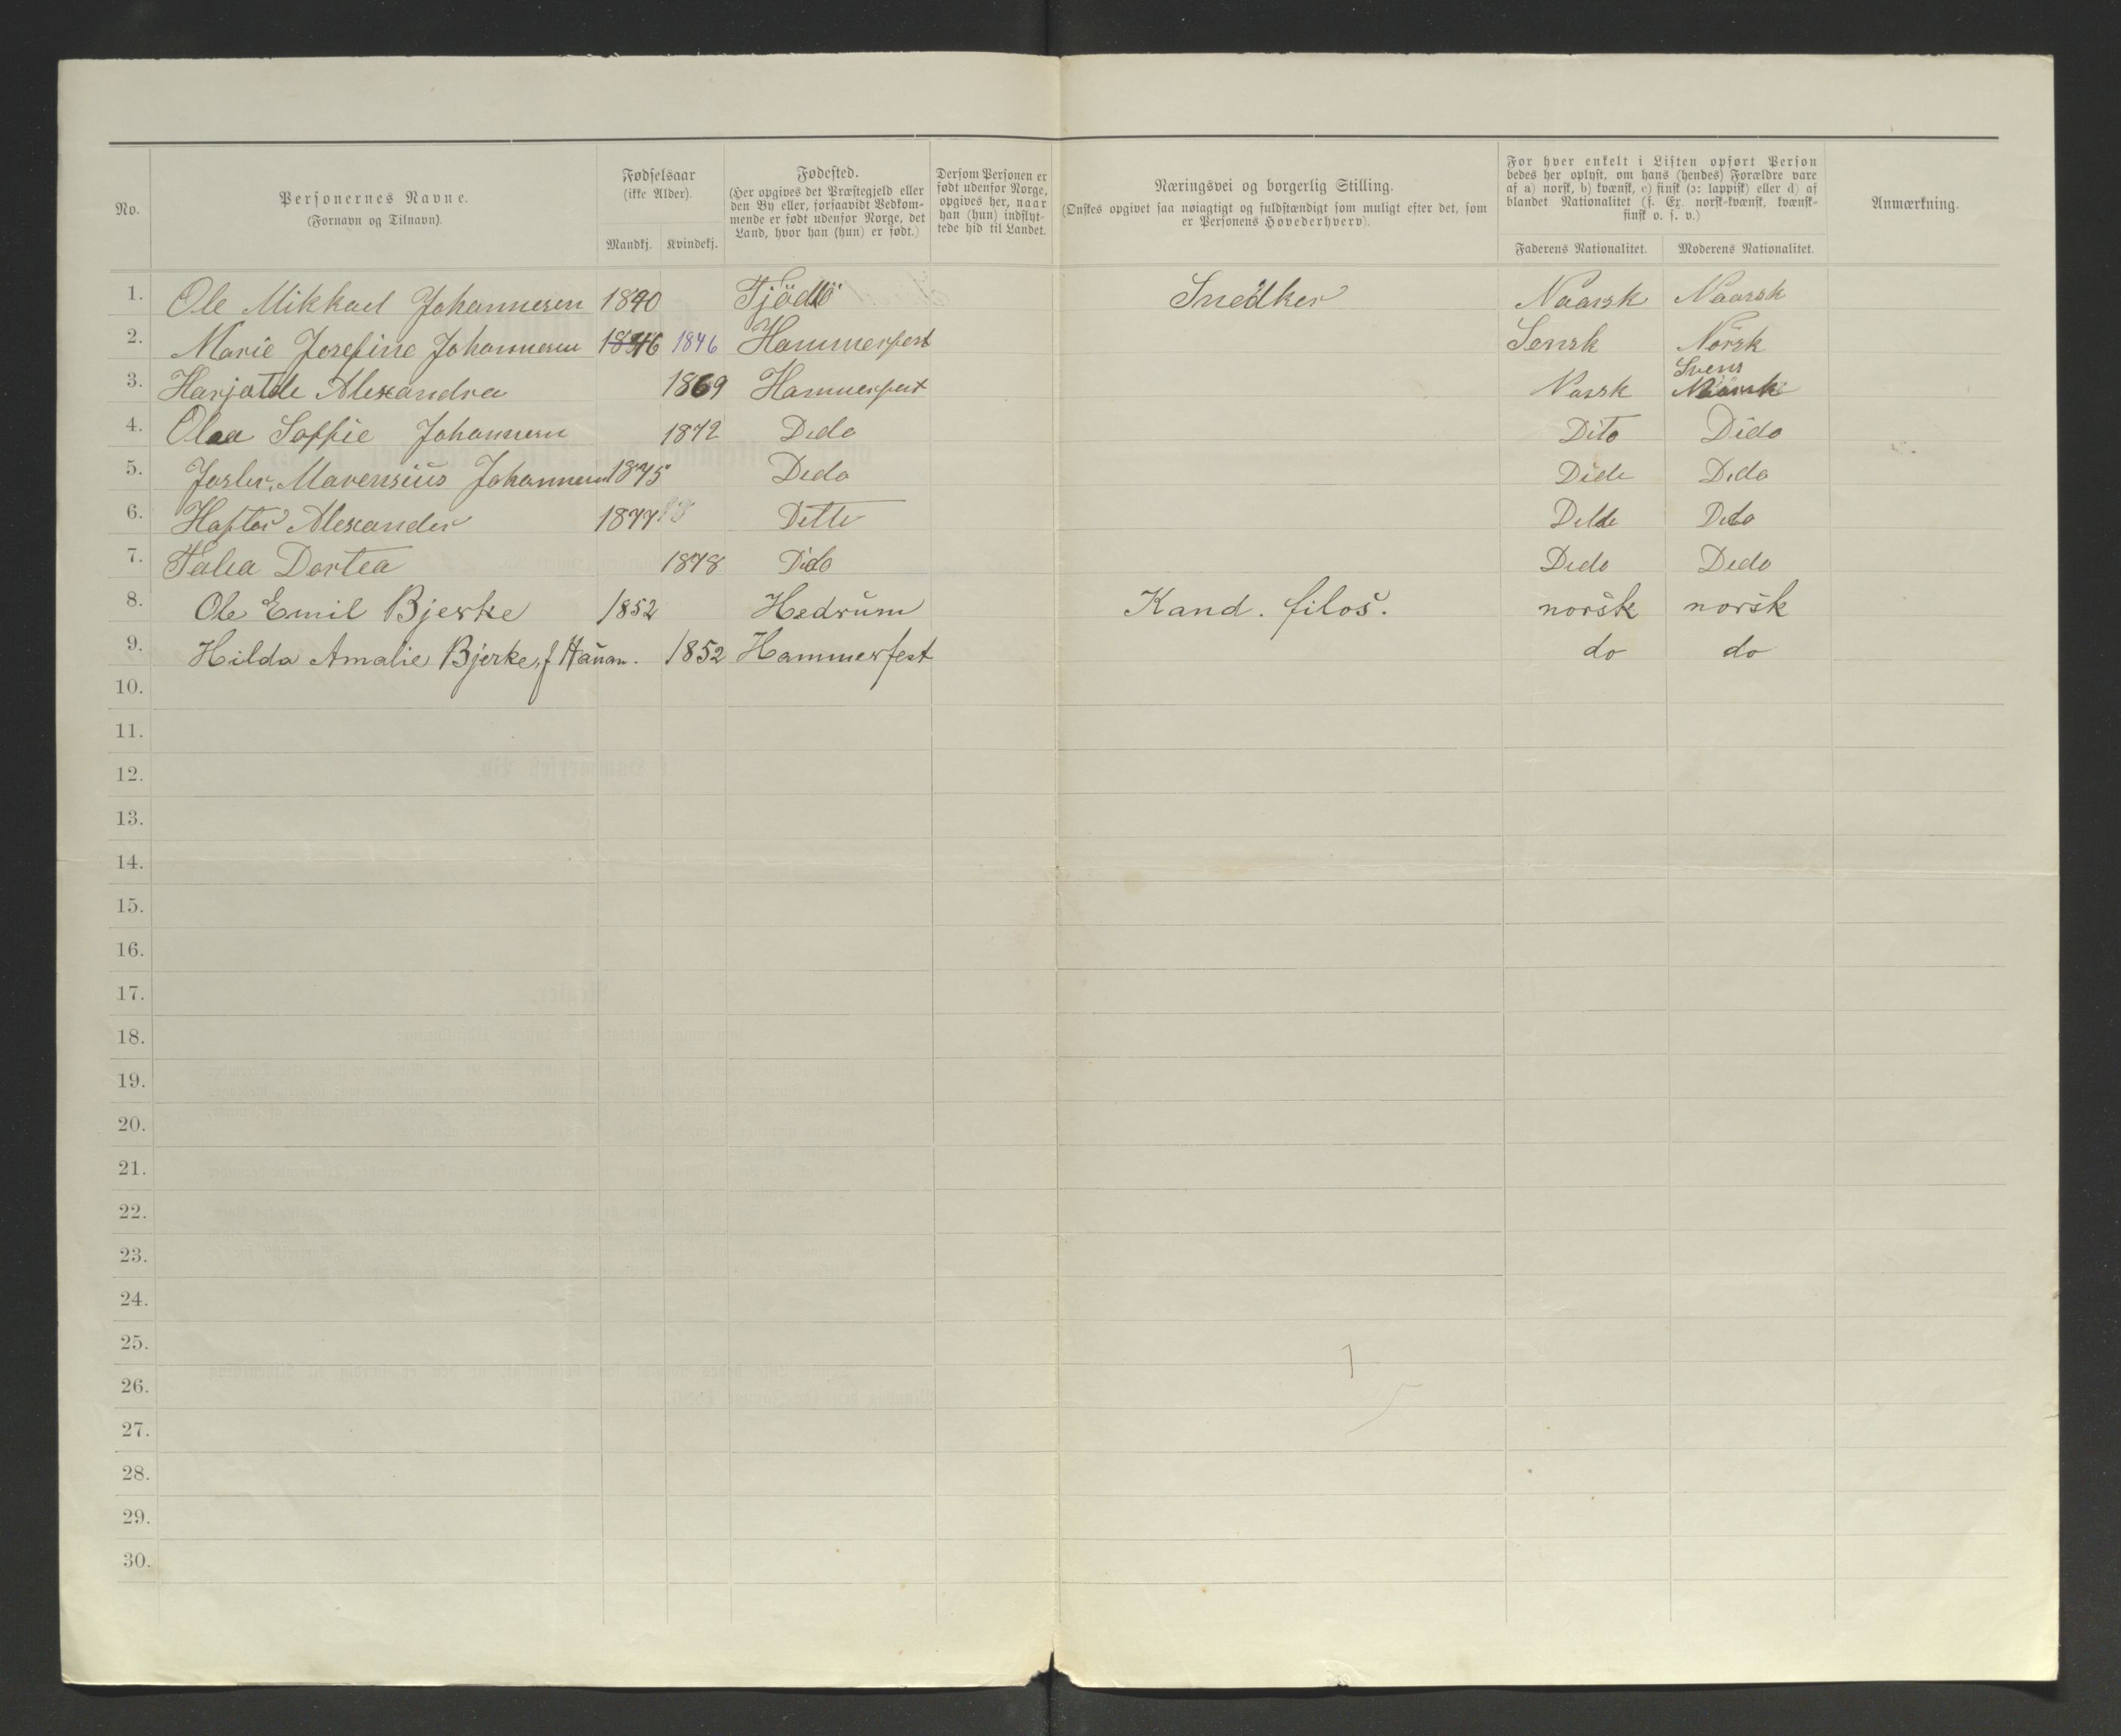 No.
Personernes Navne.
(Fornavn og Tilnavn).
Fødselsaar
(ikke Alder).
Mandkj. Kvindekj.
Fødested.
(Her opgives det Præstegjeld eller
den By eller, forsaavidt Vedkom-
mende er født udenfor Norge, det
Land, hvor han (hun) er født.)
Dersom Personen er
født udenfor Norge,
opgives her, naar
han (hun) indflyt-
tede hid til Landet.
Næringsvei og borgerlig Stilling.
(Ønskes opgivet saa nøiagtigt og fuldstændigt som muligt efter det, som
er Personens Hovederhverv).
For hver enkelt i Listen opført Person
bedes her oplyst, om hans (hendes) Forældre vare
af a) norsk, b) kvænsk, c) finsk (ɔ: lappisk) eller d) af
blandet Nationalitet (f. Ex. norsk-kvænsk, kvænsk-
finsk o. s. v.)
Faderens Nationalitet. Moderens Nationalitet.
Anmærkning.
1. Ole Mikkael Johannesen 1840 Snedker Naarsk Naarsk
2. Marie Josefine Johannesen 1846 1846 Hammerfest Sensk Norsk
Svens
3. Alexandra 1869 Hammerfest Narsk
4. Olea Soffie Johannesen 1872 Dido Dito Dido
5. Marensius Johannesen 1875 Dido Dido Dido
6. Haftor Alexander 1877 Ditto Dido
7. Talea Dortea 1878 Dido Dido Dido
8. Ole Emil Bjerke 1852 Hedrum Kand. filos. norsk norsk
9. Hilda Amalie Bjerke, f Hanan. 1852 Hammerfest do do
10.
11.
12.
13.
14.
15.
16.
17.
18.
19.
20.
21.
22.
23.
24.
25.
26.
27.
28.
29.
30.